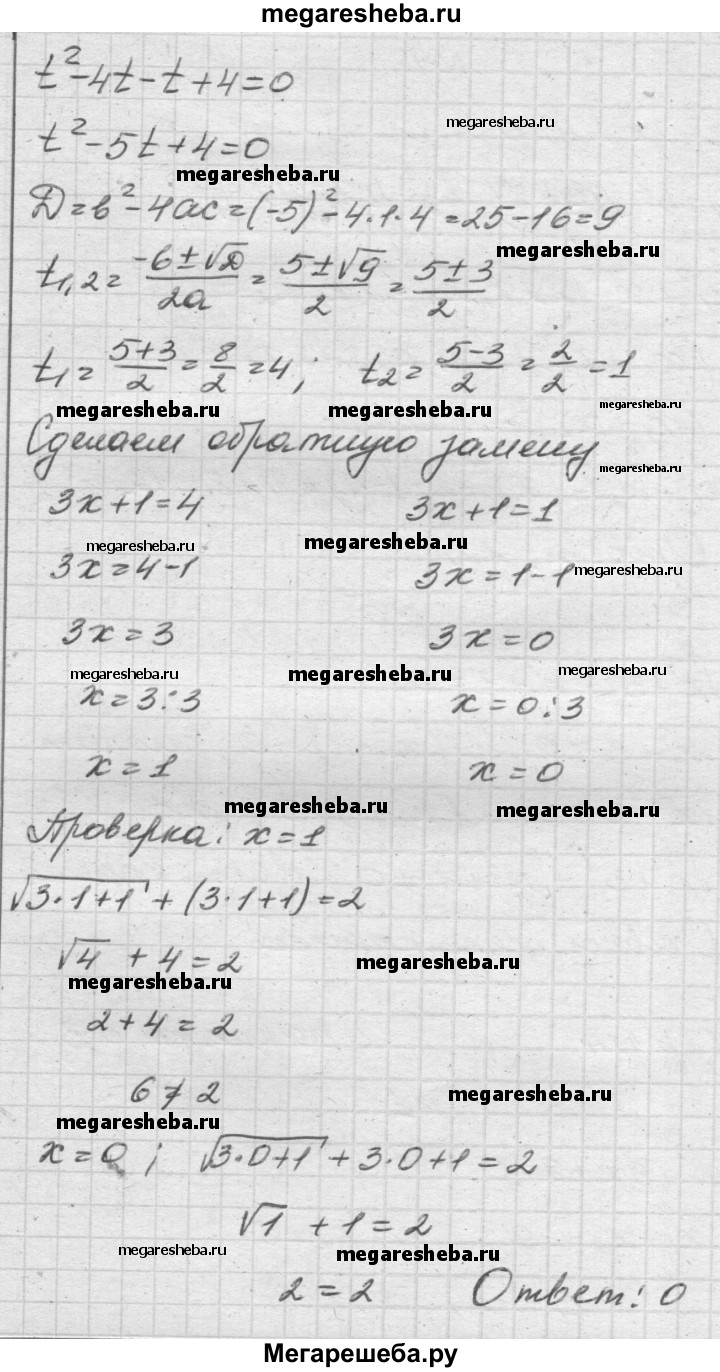 megaresheba.ru
t²-4t-t+4=0
megaresheba.ru
t²-5t+4=0
megaresheba.ru
D=b²-4ac=(-5)²-4·1·4=25-16=9
megaresheba.ru
t1,2=(-b±√D)/2a=(5±√9)/2=(5±3)/2
t1=(5+3)/2=8/2=4; t2=(5-3)/2=2/2=1
megaresheba.ru megaresheba.ru megaresheba.ru
Сделаем обратную замену
megaresheba.ru
3x+1=4 3x+1=1
megaresheba.ru megaresheba.ru
3x=4-1 3x=1-1 megaresheba.ru
3x=3 3x=0
megaresheba.ru megaresheba.ru megaresheba.ru
x=3:3 x=0:3
x=1 x=0
megaresheba.ru megaresheba.ru
Проверка: x=1
√(3·1+1)+(3·1+1)=2
√4+4=2 megaresheba.ru
megaresheba.ru
2+4=2
6≠2 megaresheba.ru
megaresheba.ru
x=0; √(3·0+1)+3·0+1=2
√1+1=2
megaresheba.ru megaresheba.ru
2=2 Ответ: 0
Мегарешеба.ру